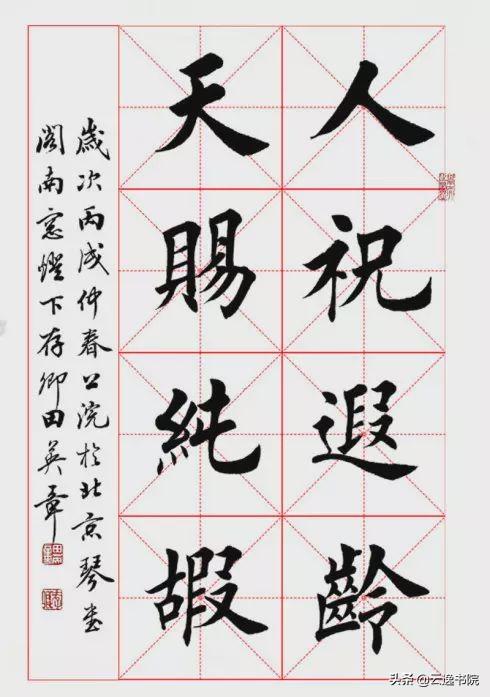 人祝遐齡
天賜純嘏
歲次丙戌仲春上浣於北京琴書
閣南窓燈下存卿田英章
头条 @云逸书院